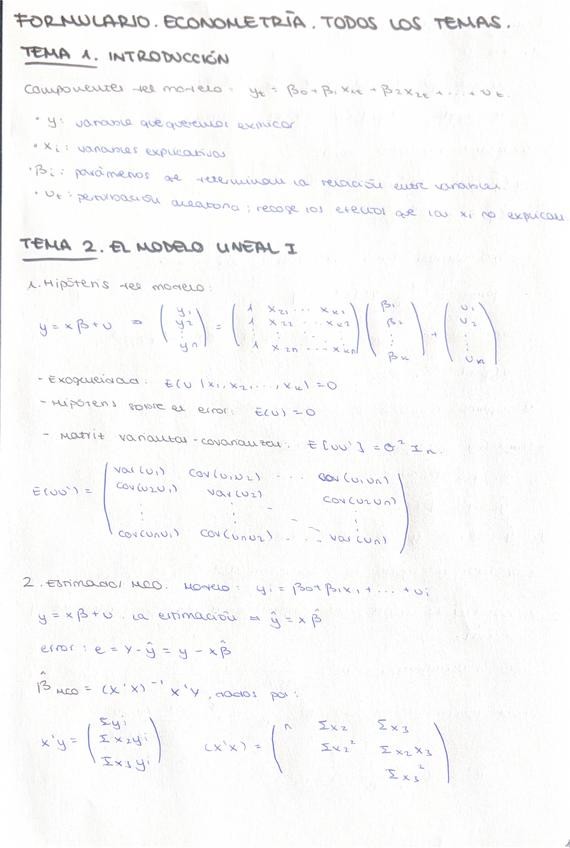 FORMULARIO. ECONOMETRÍA. TODOS LOS TEMAS.
TEMA 1. INTRODUCCIÓN
Componentes del modelo: yt = β0 + β1 x1t + β2 x2t + ... + Ut.
• y: variable que queremos explicar
• xi: variables explicativas
• βi: parámetros que determinan la relación entre variables.
• Ut: perturbación aleatoria; recoge los efectos que las xi no explican
TEMA 2. EL MODELO LINEAL I
1. Hipótesis del modelo:
y = xβ + U ⇒ (y1 y2 ⋮ yn) = (1 x21 ... xk1; 1 x22 ... xk2; ⋮; 1 x2n ... xkn) (β1 β2 ⋮ βk) + (U1 U2 ⋮ Un)
- Exogeneidad: E(U | x1, x2, ..., xk) = 0
- Hipótesis sobre el error: E(U) = 0
- Matriz varianzas-covarianzas: E[UU'] = σ² In.
E(UU') = (var(U1) cov(U1U2) ... cov(U1Un); cov(U2U1) var(U2) cov(U2Un); ⋮ ⋮ ⋮; cov(UnU1) cov(UnU2) ... var(Un))
2. Estimador MCO. Modelo: yi = β0 + β1x1 + ... + Ui
y = xβ + U. La estimación ⇒ ŷ = xβ̂
error: e = Y - ŷ = y - xβ̂
β̂ MCO = (X'X)⁻¹ X'Y, dados por:
x'y = (Σyi; Σx2yi; Σx3yi) (x'x) = (n Σx2 Σx3; Σx2² Σx2x3; Σx3²)
1